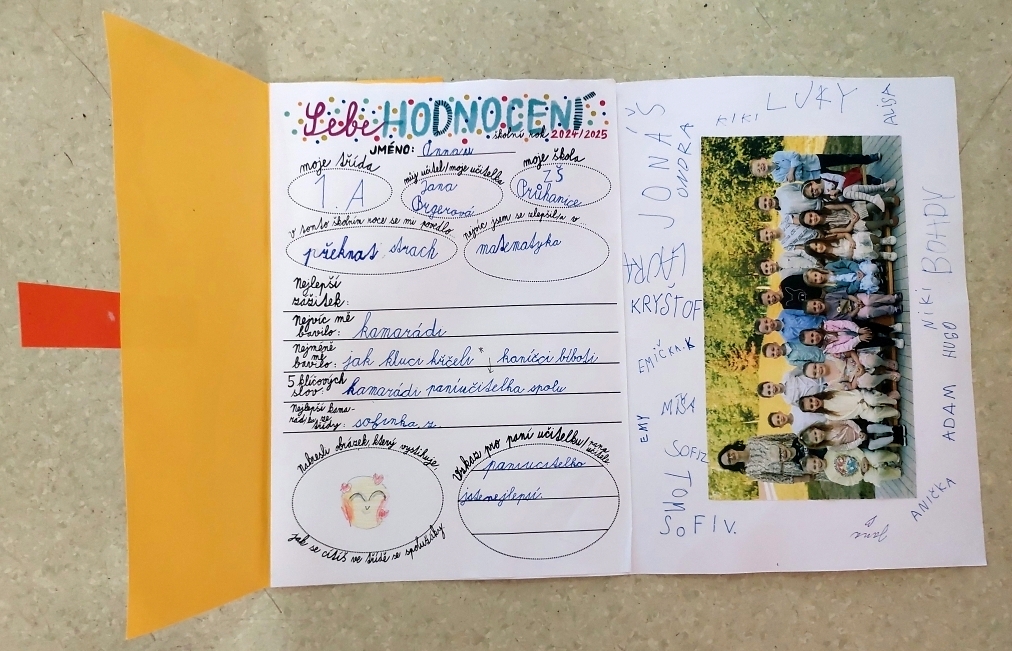 SebeHODNOCENÍ
školní rok 2024/2025
JMÉNO:
moje třída
1. A
můj učitel/moje učitelka
Jana
moje škola
ZŠ
Průhonice
v tomto školním roce se mi povedlo
překnat strach
nejvíc jsem se zlepšil v
matematyka
Nejlepší
zážitek:
Nejvíc mě
bavilo: kamarádi
Nejméně
mě
bavilo: jak kluci křičeli
5 klíčových
slov: kamarádi paníučitelka spolu
Nejlepší kama-
rád/ka ze
třídy: sofinka z
Nakresli obrázek, který vystihuje,
jak se cítíš ve třídě se spolužáky
Vzkaz pro paní učitelku/pana
učitele
paníučitelko
jstenejlepší
KIKI
LUKY
JONÁŠ
ONDRA
LAURA
KRYŠTOF
EMIČKA.K
EMY
MÍŠA
SOFI Z
TOM S
SOFI V.
NIKI
HUGO
ADAM
ANIČKA
Jana